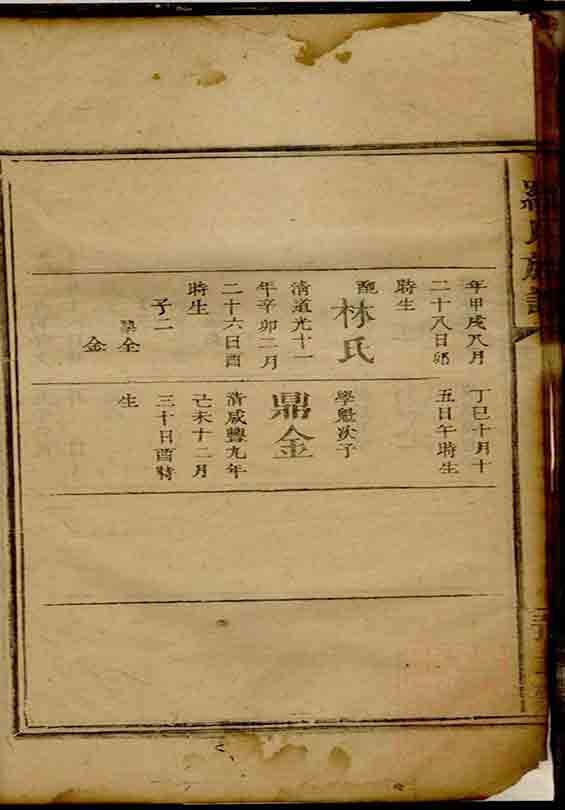 羅氏族譜
年甲戌八月
二十八日卯
時生
配
林氏
清道光十一
年辛卯二月
二十六日酉
時生
子二
全
金
丁巳十月十
五日午時生
學魁次子
鼎金
清咸豐九年
己未十二月
三十日酉時
生